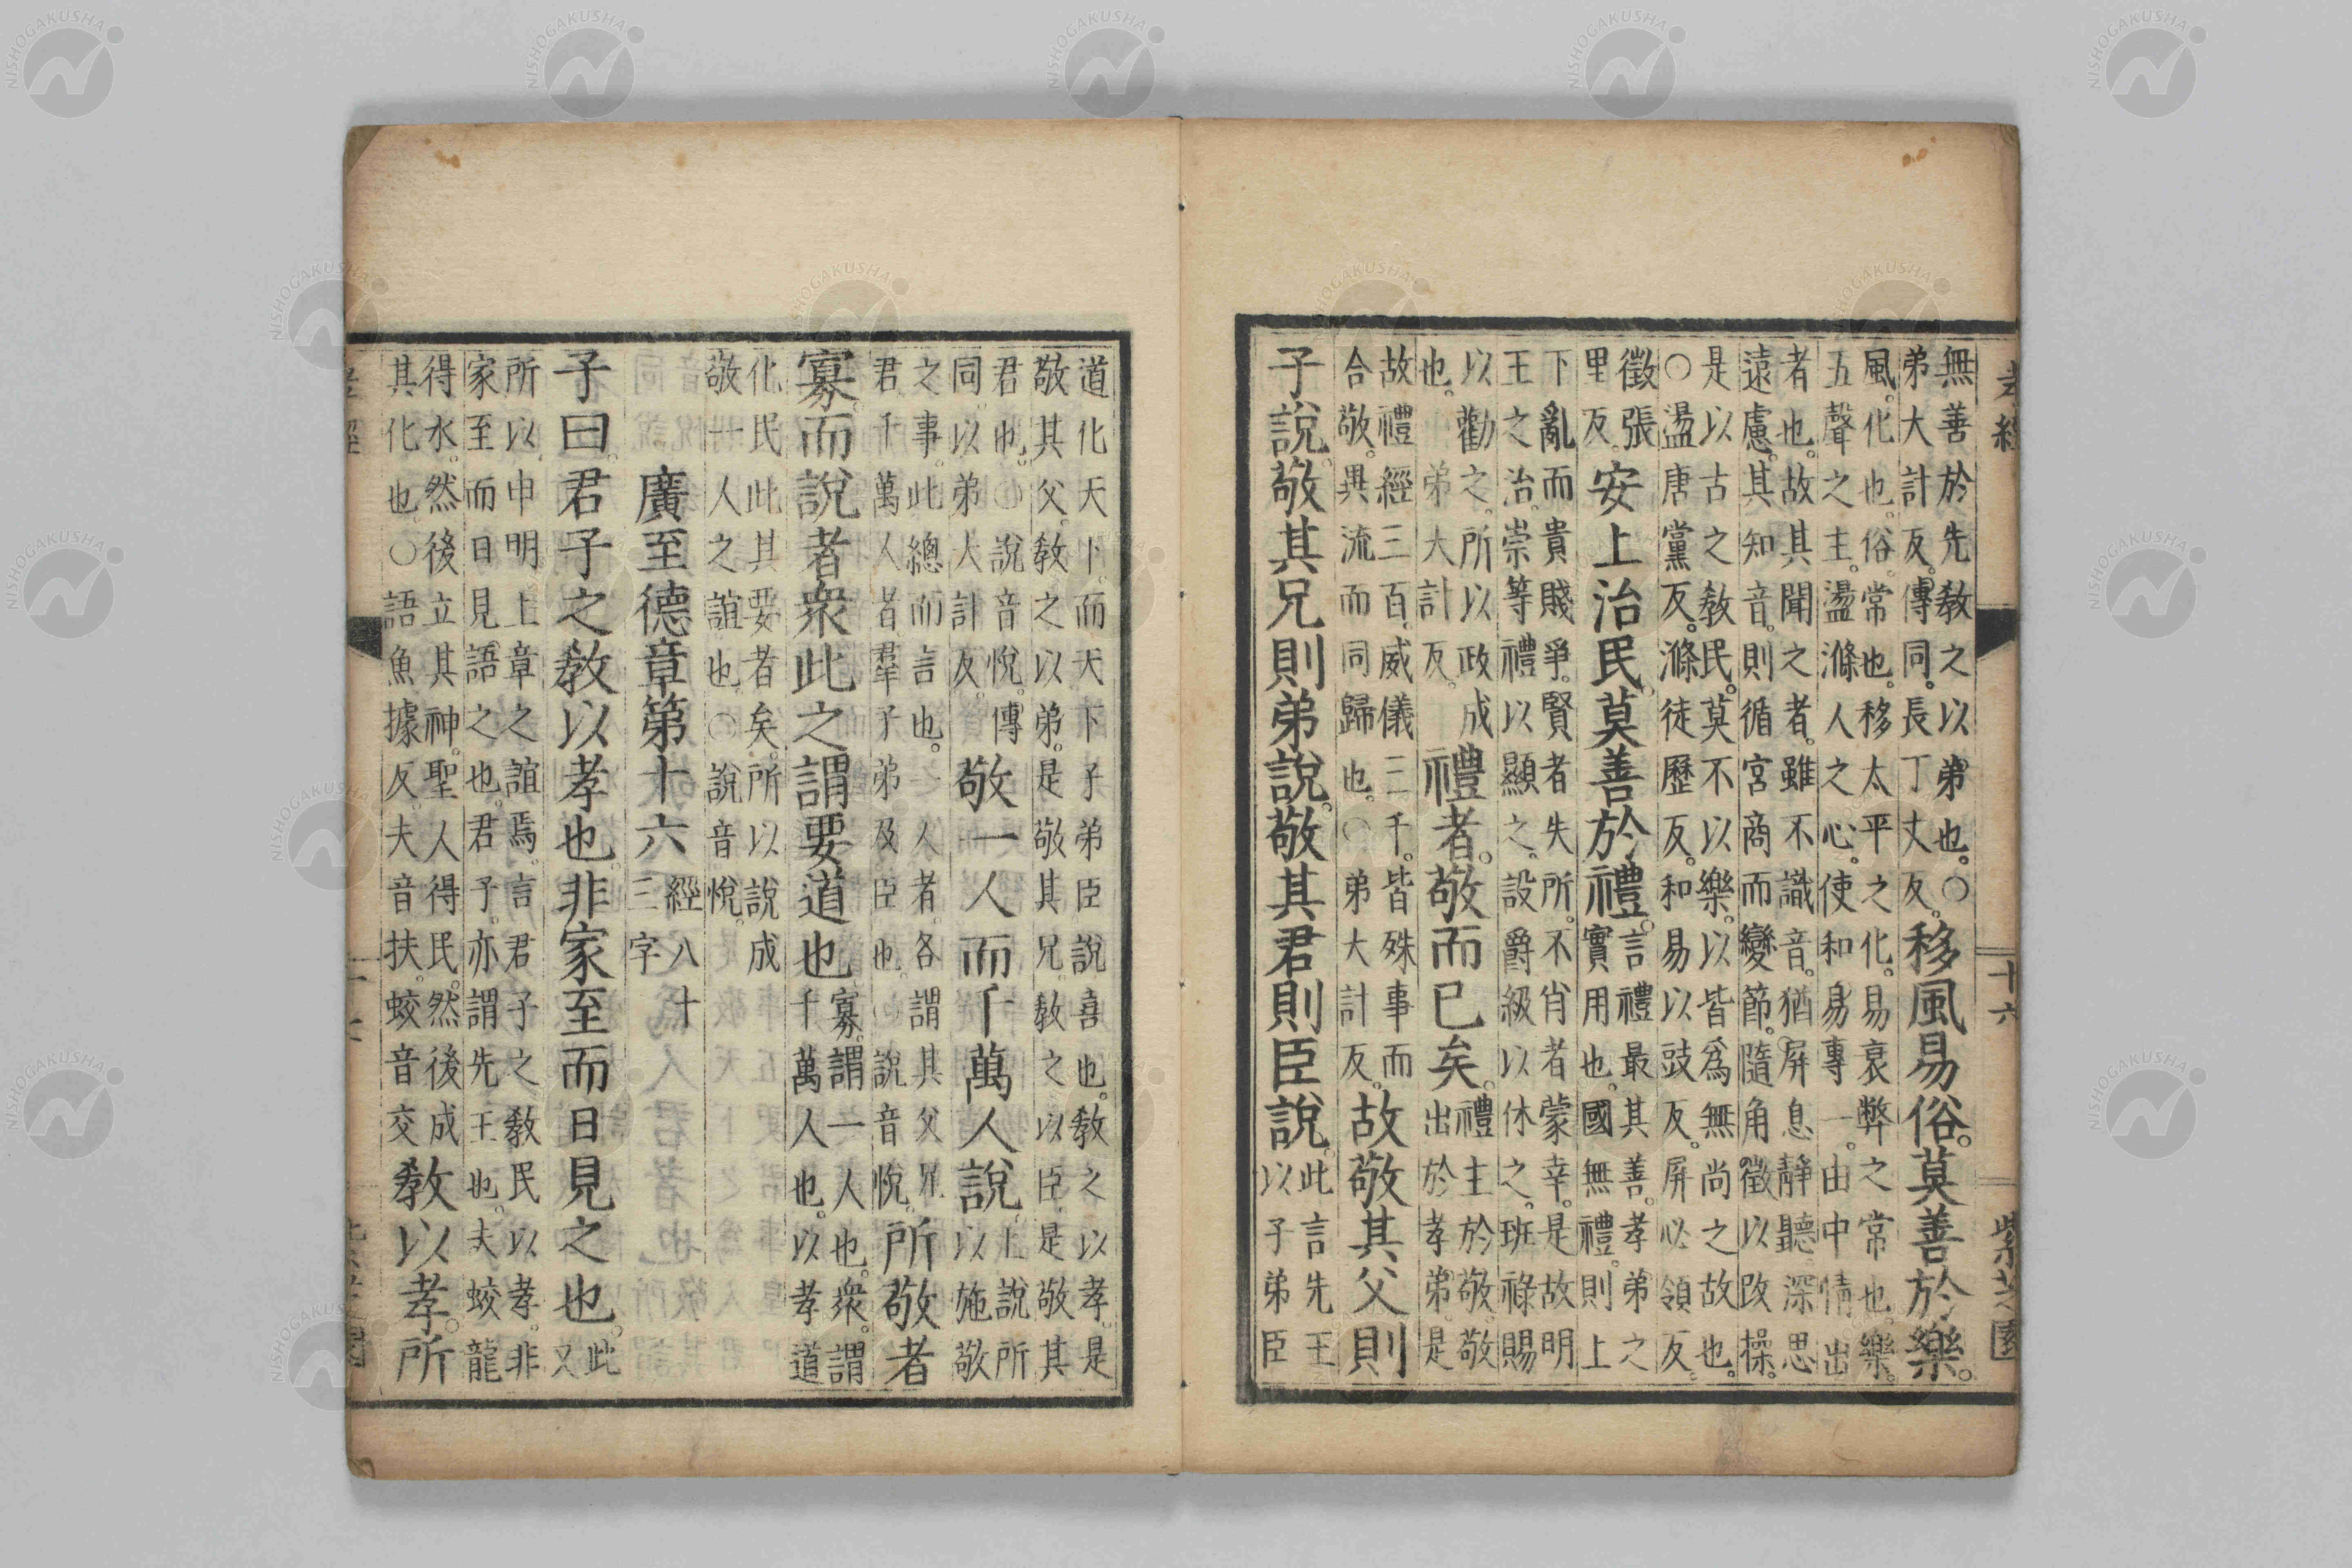 無善於先敎之以弟也。○
弟大計反。傳同。長丁丈反。
移風易俗。莫善於樂。
風。化也。俗。常也。移太平之化。易衰弊之常也。樂。
五聲之主。盪滌人之心。使和易專一。由中情出
者也。故其聞之者。雖不識音。猶屏息靜聽。深思
遠慮。其知音。則循宮商而變節。隨角徵以改操。
是以古之敎民。莫不以樂。以皆爲無尚之故也。
○盪唐黨反。滌徒歷反。和易以豉反。屏必領反。
徵張
里反。
安上治民。莫善於禮。
言禮最其善。孝弟之
實用也。國無禮。則上
下亂而貴賤爭。賢者失所。不肖者蒙幸。是故明
王之治。崇等禮以顯之。設爵級以休之。班祿賜
以勸之。所以政成
也。弟大計反。
禮者。敬而已矣。
禮主於敬。敬
出於孝弟。是
故禮經三百。威儀三千。皆殊事而
合敬。異流而同歸也。○弟大計反。
故敬其父則
子說。敬其兄則弟說。敬其君則臣說。
此言先王
以子弟臣
孝經
十六
紫芝園
道化天下。而天下子弟臣說喜也。敎之以孝。是
敬其父。敎之以弟。是敬其兄。敎之以臣。是敬其
君也。○說音悅。傳
同。以弟大計反。
敬一人而千萬人說。
上說所
以施敬
之事。此總而言也。一人者。各謂其父兄
君。千萬人者。羣子弟及臣也。○說音悅。
所敬者
寡。而說者衆。此之謂要道也。
寡。謂一人也。衆。謂
千萬人也。以孝道
化民。此其要者矣。所以說成
敬一人之誼也。○說音悅。
廣至德章第十六
經八十
三字
子曰。君子之敎以孝也。非家至而日見之也。
此
又
所以申明上章之誼焉。言君子之敎民以孝。非
家至而日見語之也。君子。亦謂先王也。夫蛟龍
得水。然後立其神。聖人得民。然後成
其化也。○語魚據反。夫音扶。蛟音交
敎以孝。所